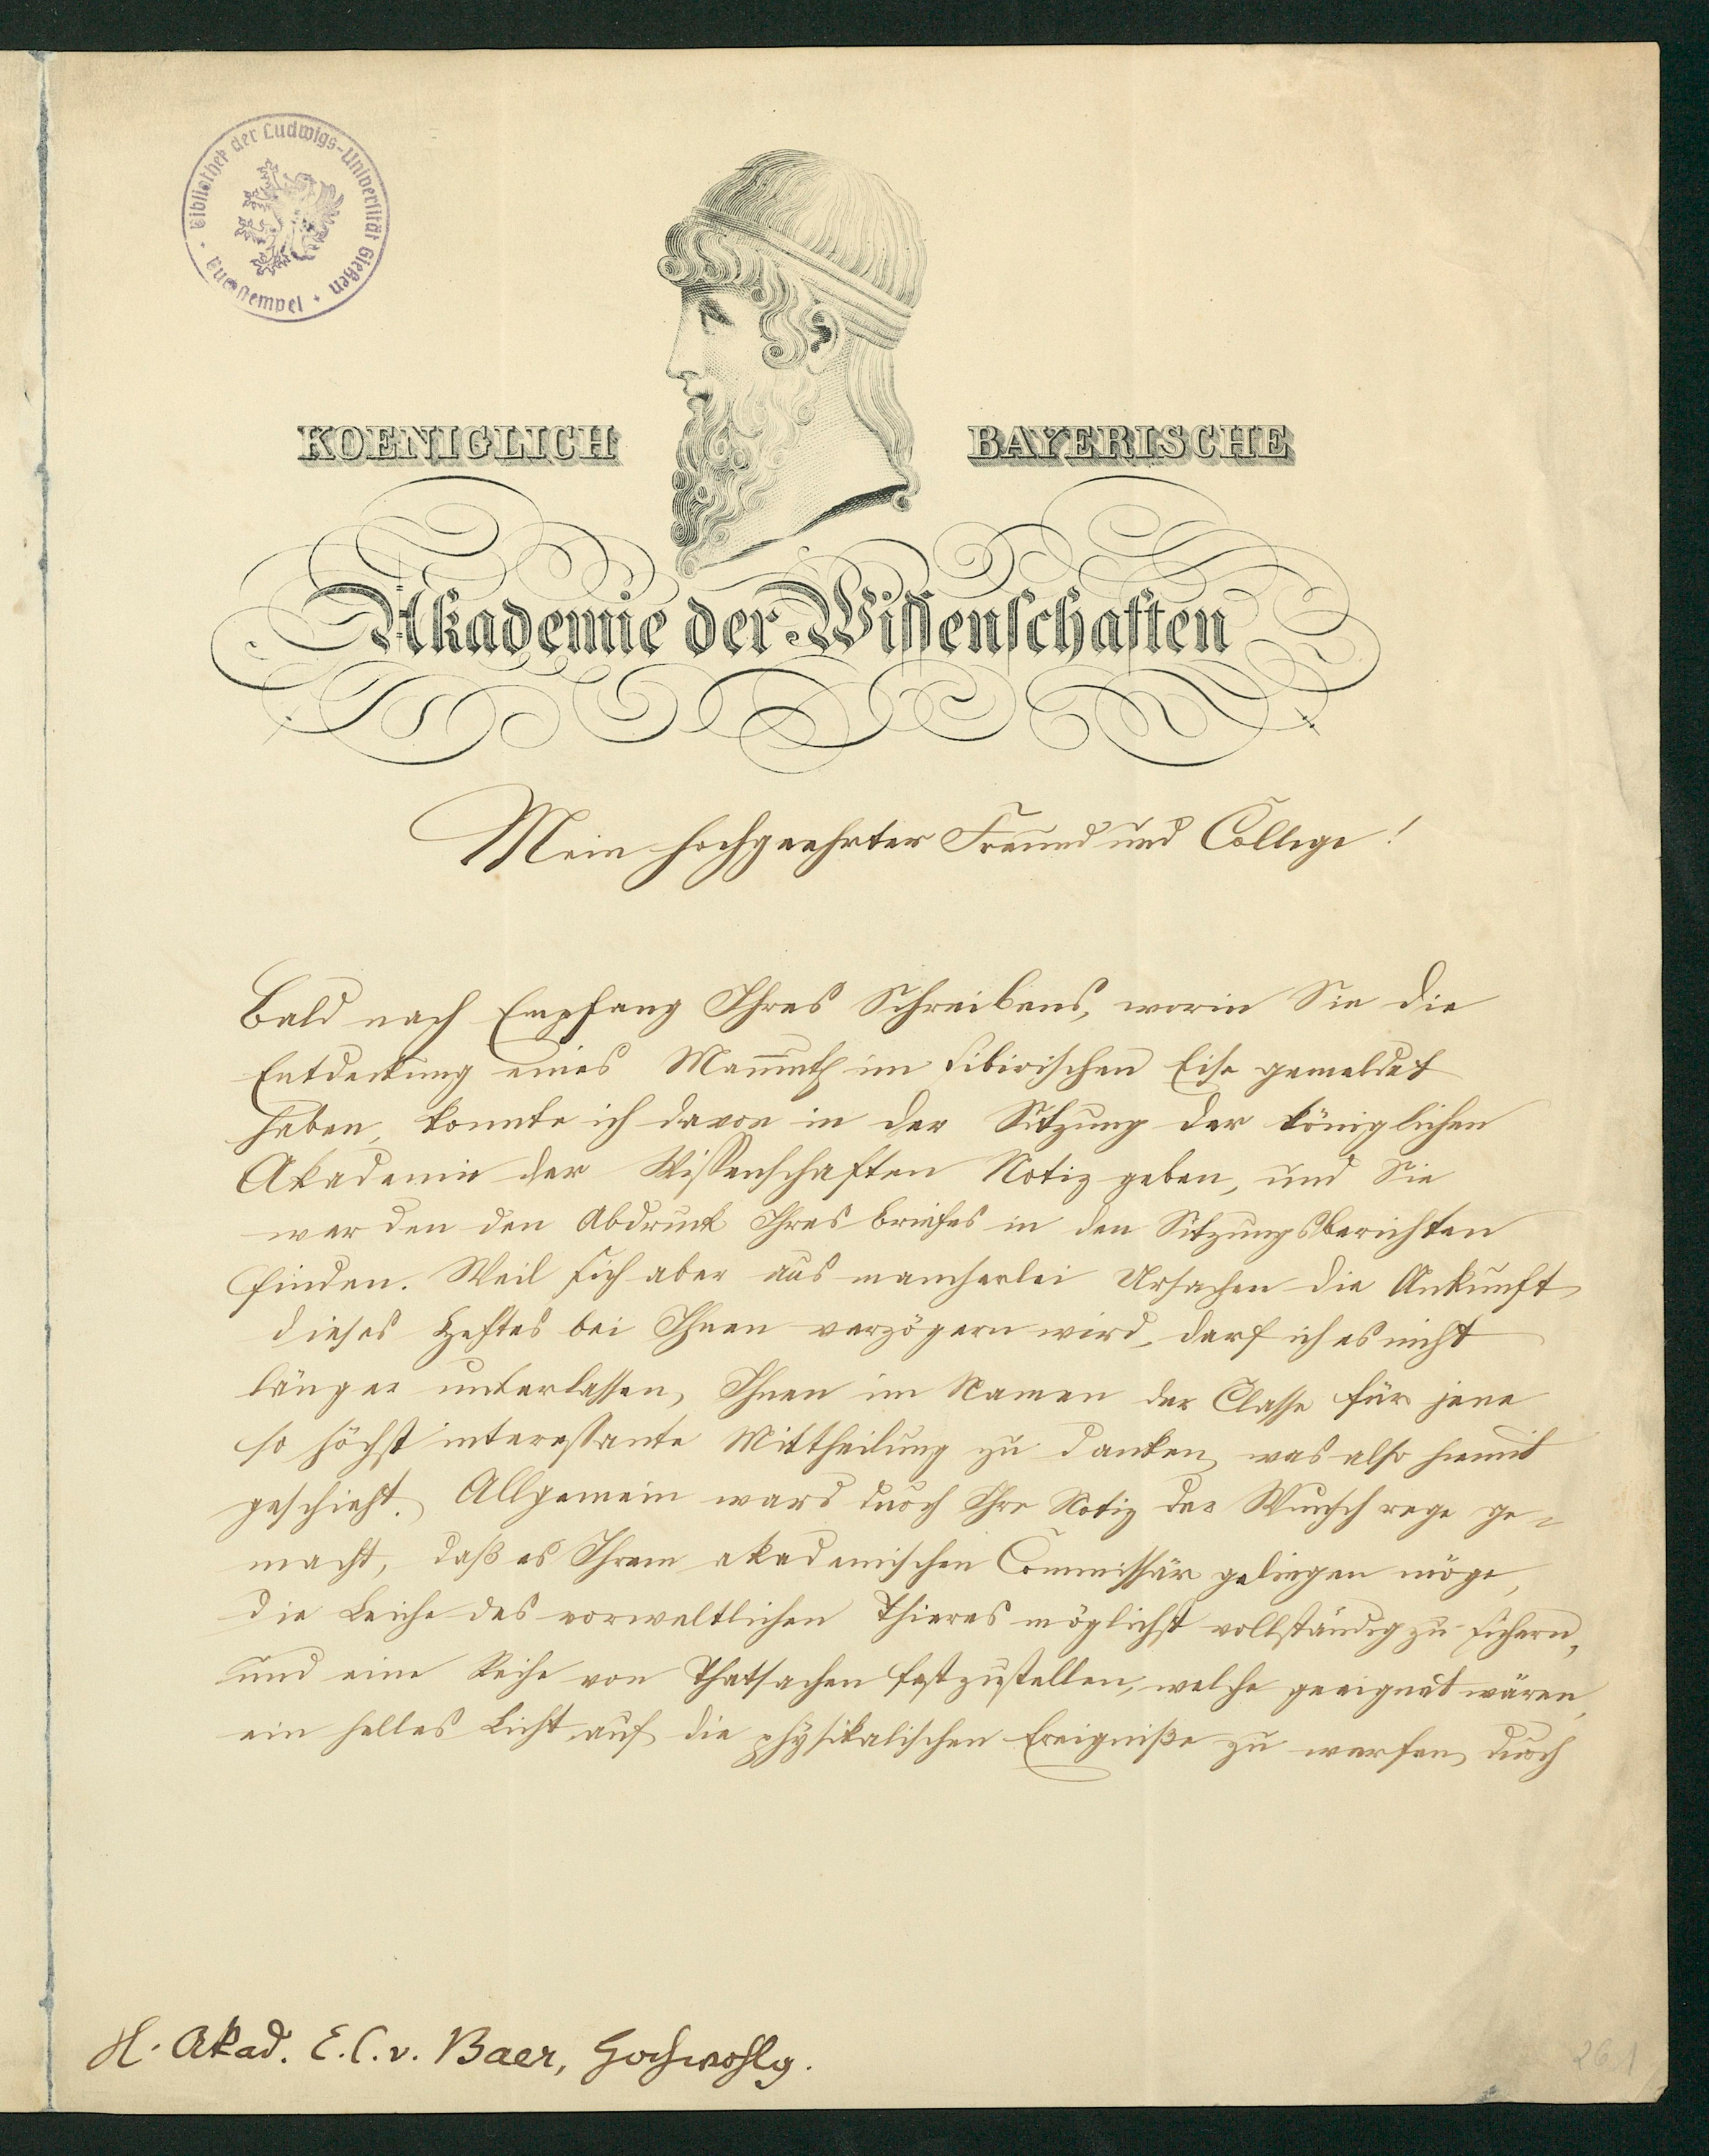 Bibliothek der Ludwigs-Universität Gießen
KOENIGLICH BAYERISCHE
Akademie der Wissenschaften
Mein hochgeehrter Freund und College!
Bald nach Empfang Ihres Schreibens, worin Sie die
Entdeckung eines Mam̅uth im sibirischen Eise gemeldet
haben, konnte ich davon in der Sitzung der königlichen
Akademie der Wissenschaften Notiz geben, und Sie
werden den Abdruck Ihres Briefes in den Sitzungsberichten
finden. Weil sich aber aus mancherlei Ursachen die Ankunft
dieses Heftes bei Ihnen verzögern wird, darf ich es nicht
länger unterlassen, Ihnen im Namen der Classe für jene
so höchst interessante Mittheilung zu danken, was also hiemit
geschieht. Allgemein ward durch Ihre Notiz der Wunsch rege ge-
macht, daß es Ihrem akademischen Commissär gelingen möge,
die Leiche des vorweltlichen Thieres möglichst vollständig zu sichern,
und eine Reihe von Thatsachen festzustellen, welche geeignet wären,
ein helles Licht auf die physikalischen Ereigniße zu werfen, durch
H. Akad. E. C. v. Baer, Hochwohlg.
261